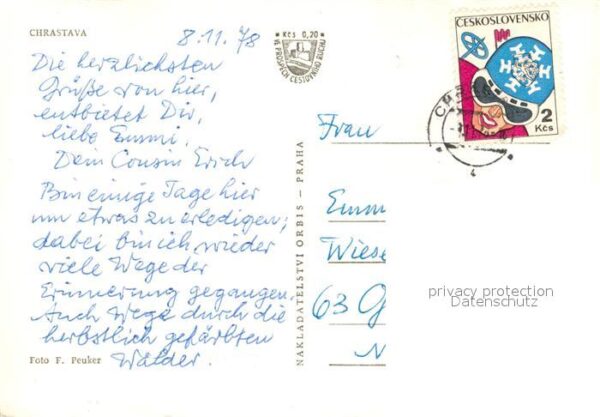 CHRASTAVA
8.11.78
Die herzlichsten
Grüße von hier,
entbietet Dir,
liebe Emmi.
Dein Cousin Erich
Bin einige Tage hier
um etwas zu erledigen;
dabei bin ich wieder
viele Wege der
Erinnerung gegangen.
Auch Wege durch die
herbstlich gefärbten
Wälder.
Foto F. Peuker
Kčs 0,20
NAKLADATELSTVÍ ORBIS — PRAHA
ČESKOSLOVENSKO
2
Kčs
Frau
Emm
Wiese
63 G
N
privacy protection
Datenschutz